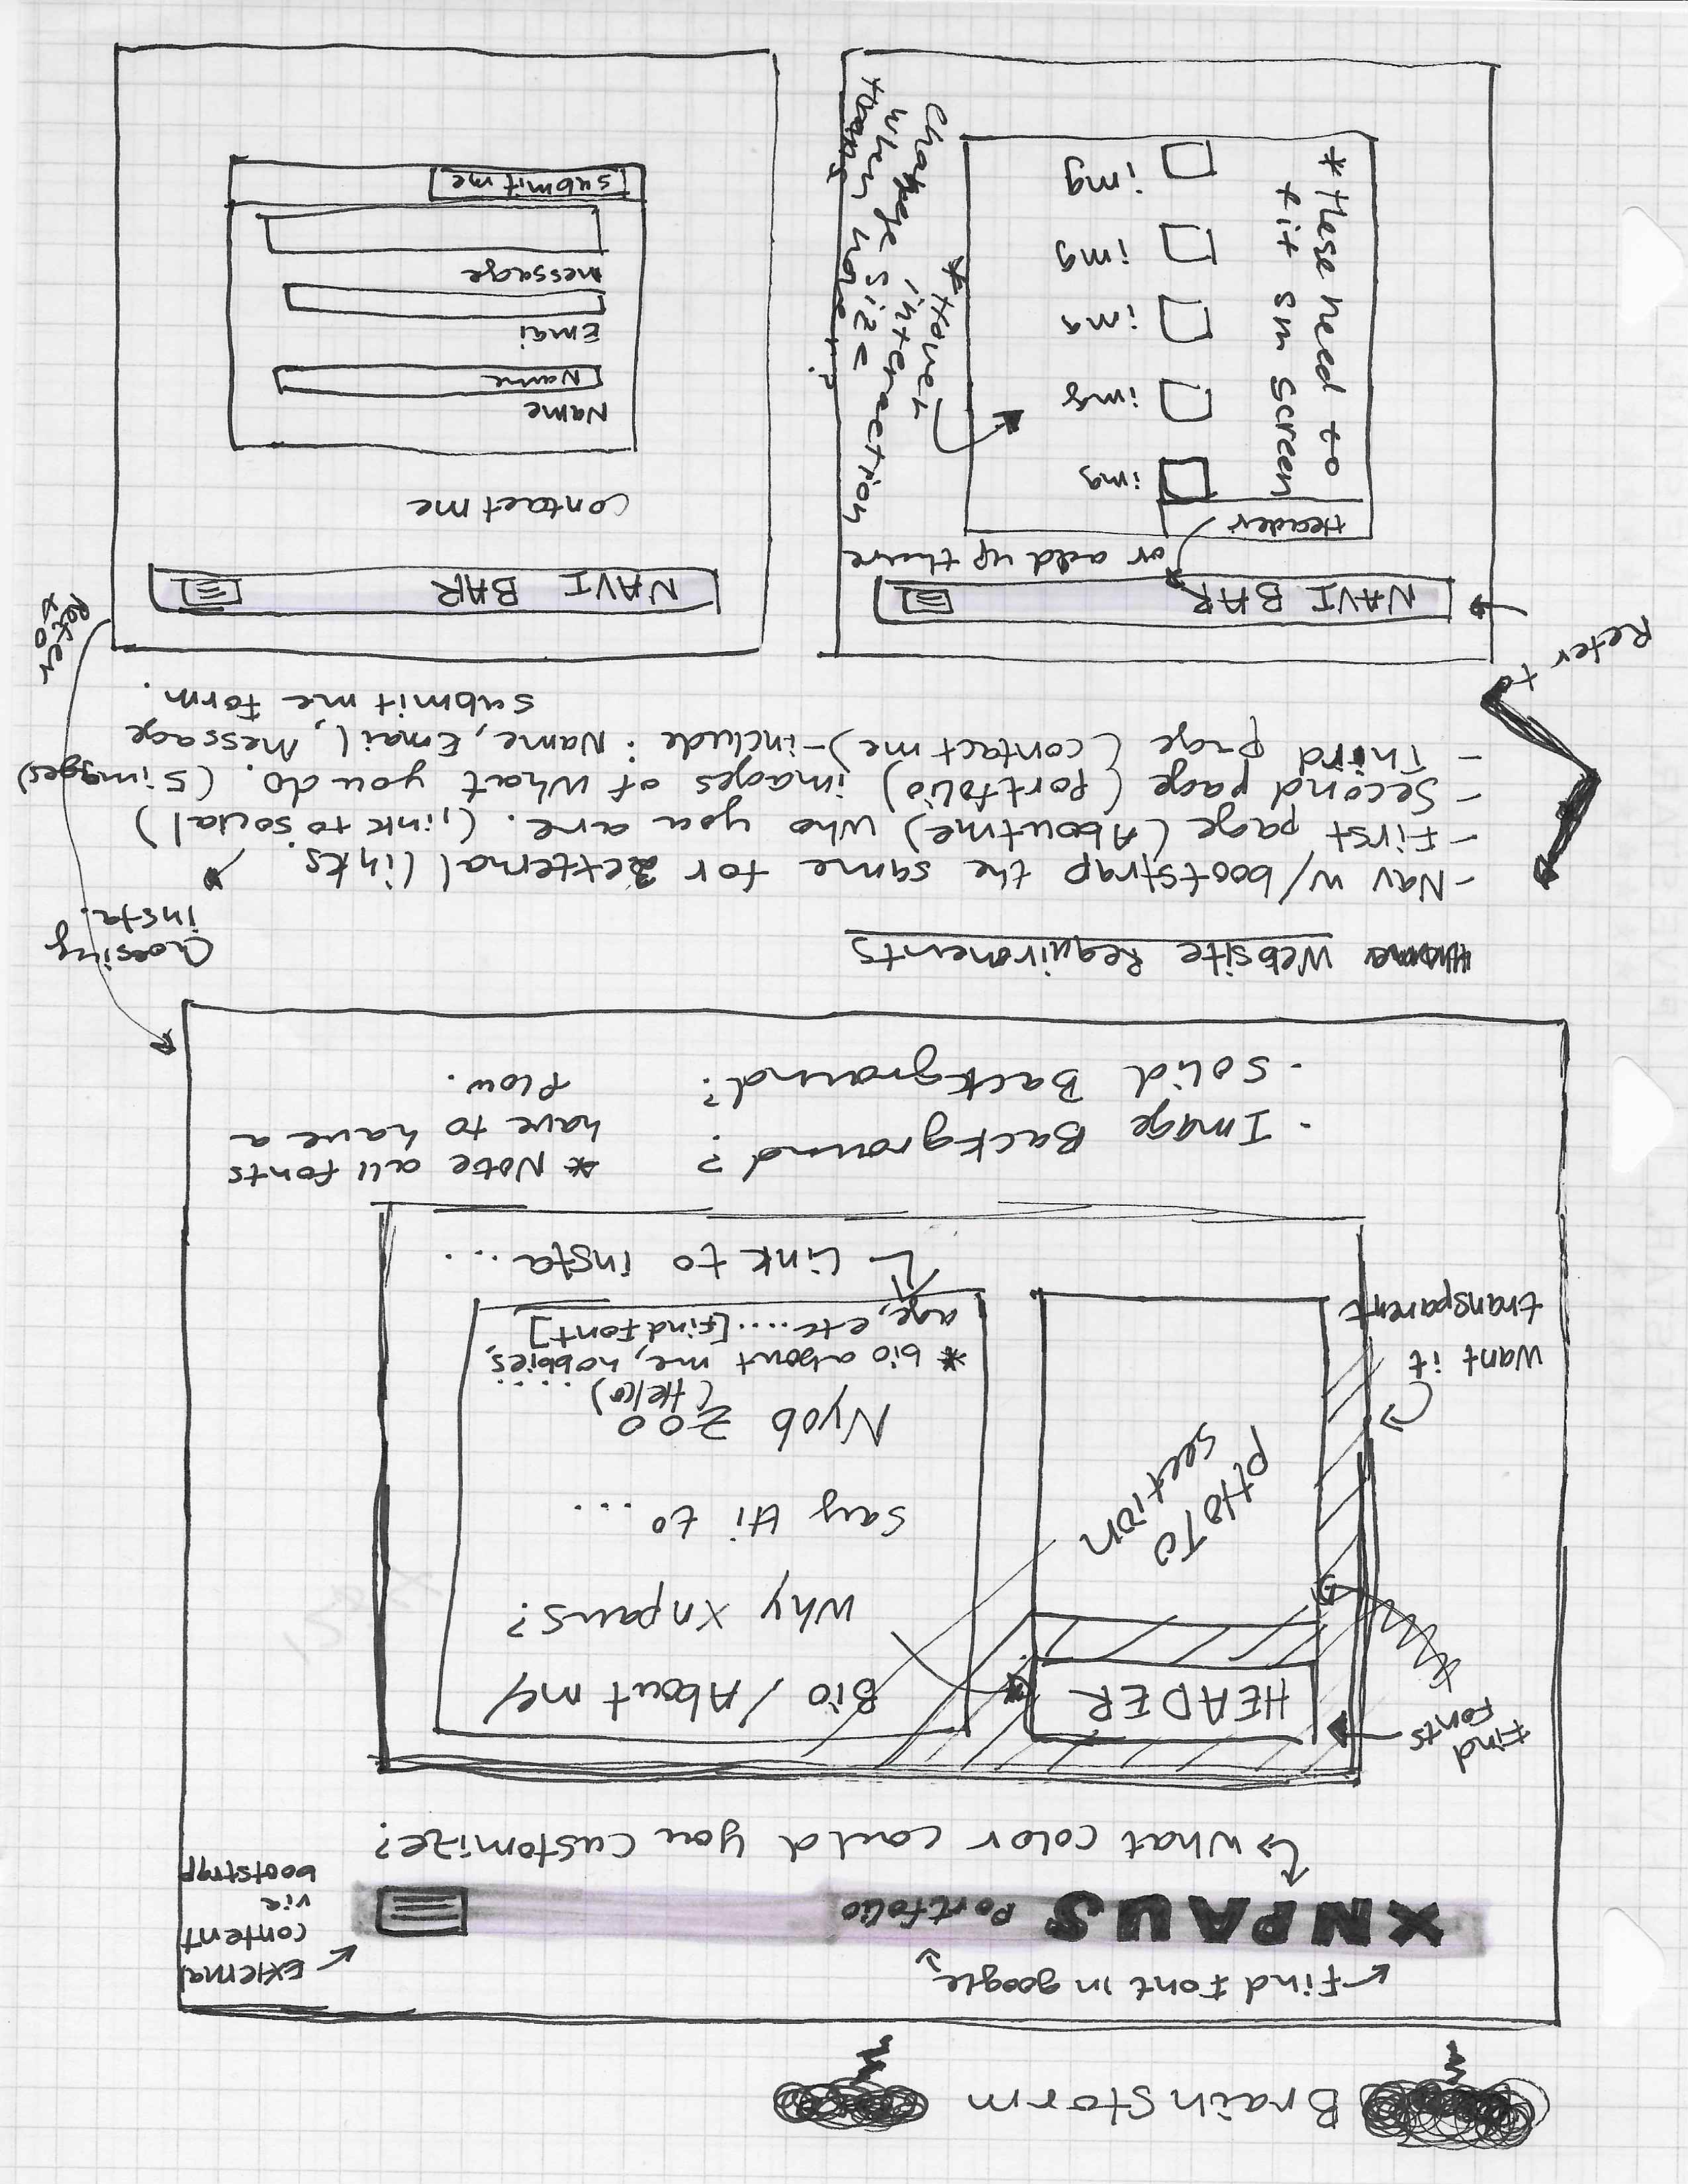 Brainstorm
Find Font in google
XNPAUS Portfolio
External
content
via
bootstrap
What color could you customize?
Find
Fonts
HEADER
PHOTO
section
Want it
transparent
Bio / About me/
Why Xnpaus?
Say Hi to ...
Nyob zoo
(Hello) .....
* bio about me, hobbies,
age, etc....[find font]
Link to insta...
- Image Background?
- Solid Background?
* Note all fonts
have to have a
flow.
Website Requirments
Choosing
insta.
- Nav w/bootstrap the same for external links.
- First page (About me) who you are. (link to social)
- Second page (portfolio) images of what you do. (5 images)
- Third page (contact me) - include : Name, Email, Message
submit me Form.
Refer to
NAVI BAR
or add up there
Header
img
img
img
img
img
* these need to
fit sm screen
* Hover
interaction
change size
when hover?
Refer
to
NAVI BAR
contact me
Name
Name
Emai
message
submit me